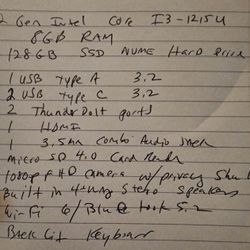 2 Gen Intel Core I3-1215U
8GB RAM
128GB SSD NVME Hard Drive
1 USB Type A 3.2
2 USB Type C 3.2
2 Thunderbolt ports
1 HDMI
1 3.5mm combo Audio Jack
Micro SD 4.0 Card Reader
1080p FHD camera w/privacy Shut
Built in 4-way Stereo speakers
Wi-Fi 6/Bluetooth 5.2
Back Lit Keyboard